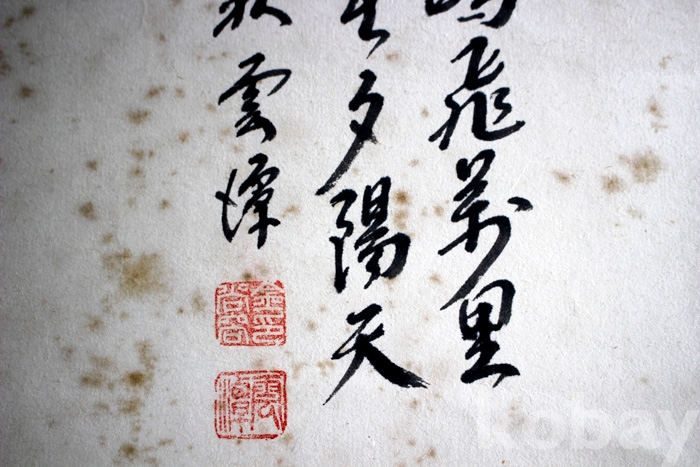 飛萬里
夕陽天
雲潭
雲潭
kobay